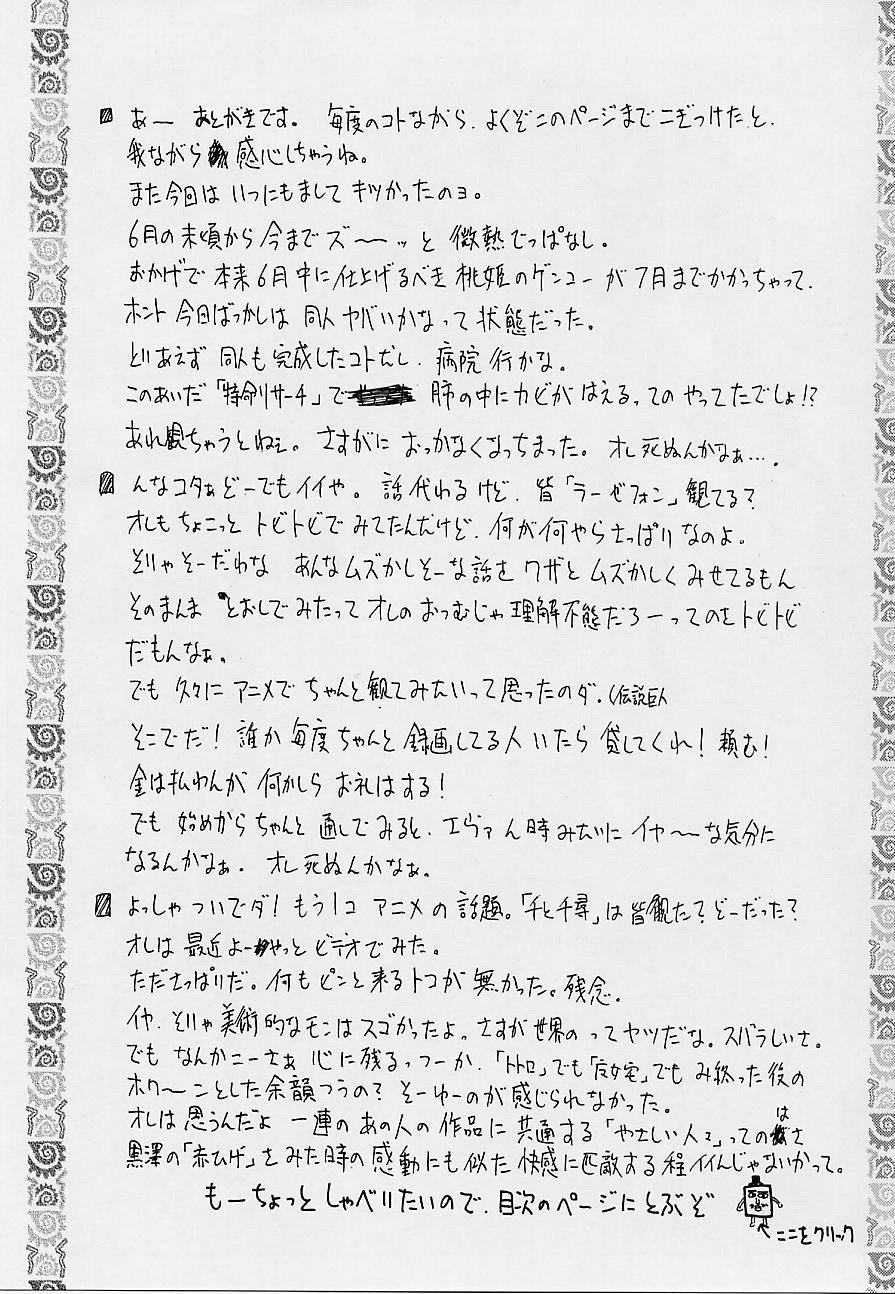 あー あとがきです。 毎度のコトながら、よくぞこのページまでこぎつけたと、
我ながら感心しちゃうね。
また今回は いつにもまして キツかったのヨ。
6月の末頃から 今まで ズ〜〜ッと 微熱でっぱなし。
おかげで 本来6月中に仕上げるべき 桃姫のゲンコーが 7月までかかっちゃって、
ホント 今回ばっかしは 同人 ヤバいかなって 状態だった。
とりあえず 同人も 完成したコトだし、病院 行かな。
このあいだ「特命リサーチ」で 肺の中にカビがはえるってのやってたでしょ!?
あれ観ちゃうとねェ。 さすがに おっかなくなっちまった。 オレ死ぬんかなぁ…。
んなコタぁ どーでもイイや。 話代わるけど、皆「ラーゼフォン」観てる?
オレもちょこっと トビトビで みてたんだけど、何が何やらさっぱりなのよ。
そりゃそーだわな あんなムズかしそーな話を ワザと ムズかしく みせてるもん
そのまんま とおしでみたって オレのおつむじゃ 理解不態だろーってのをトビトビ
だもんなぁ。
でも 久々に アニメで ちゃんと観てみたいって思ったのダ。(伝説巨人
そこでだ! 誰か 毎度 ちゃんと 録画してる人 いたら 貸してくれ! 頼む!
金は払わんが 何かしら お礼はする!
でも 始めから ちゃんと 通しでみると、エヴァん時みたいに イヤ〜〜な気分に
なるんかなぁ。 オレ死ぬんかなぁ。
よっしゃ ついでダ! もう1コ アニメの 話題。「千と千尋」は皆観た? どーだった?
オレは 最近 よーやっと ビデオでみた。
たださっぱりだ。何もピンと来るトコが 無かった。残念。
イヤ、そりゃ美術的なモンはスゴかったよ。さすが世界のってヤツだな。スバラしいさ。
でも なんかこーさぁ 心に残るっつーか、「トトロ」でも「魔女宅」でも み終った後の
ホワ〜ンとした余韻つうの? そーゆーのが感じられなかった。
オレは思うんだよ 一連の あの人の 作品に 共通する「やさしい人々」ってのはさ
黒澤の「赤ひげ」をみた時の感動にも似た 快感に匹敵する程イイんじゃないかって。
もーちょっと しゃべりたいので、目次のページにとぶぞ
ここをクリック